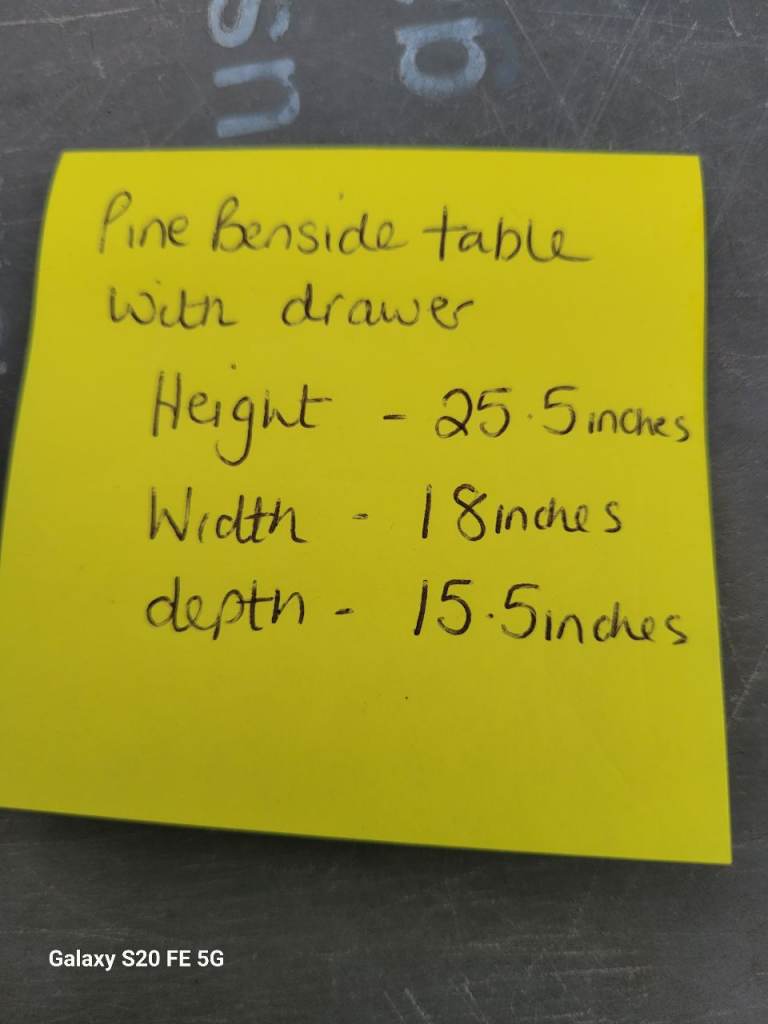 sn
d
Pine Benside table
with drawer
Height - 25.5inches
Width - 18inches
depth - 15.5inches
Galaxy S20 FE 5G